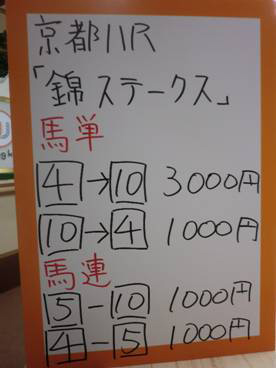 京都11R
「錦ステークス」
馬単
4→10 3000円
10→4 1000円
馬連
5-10 1000円
4-5 1000円